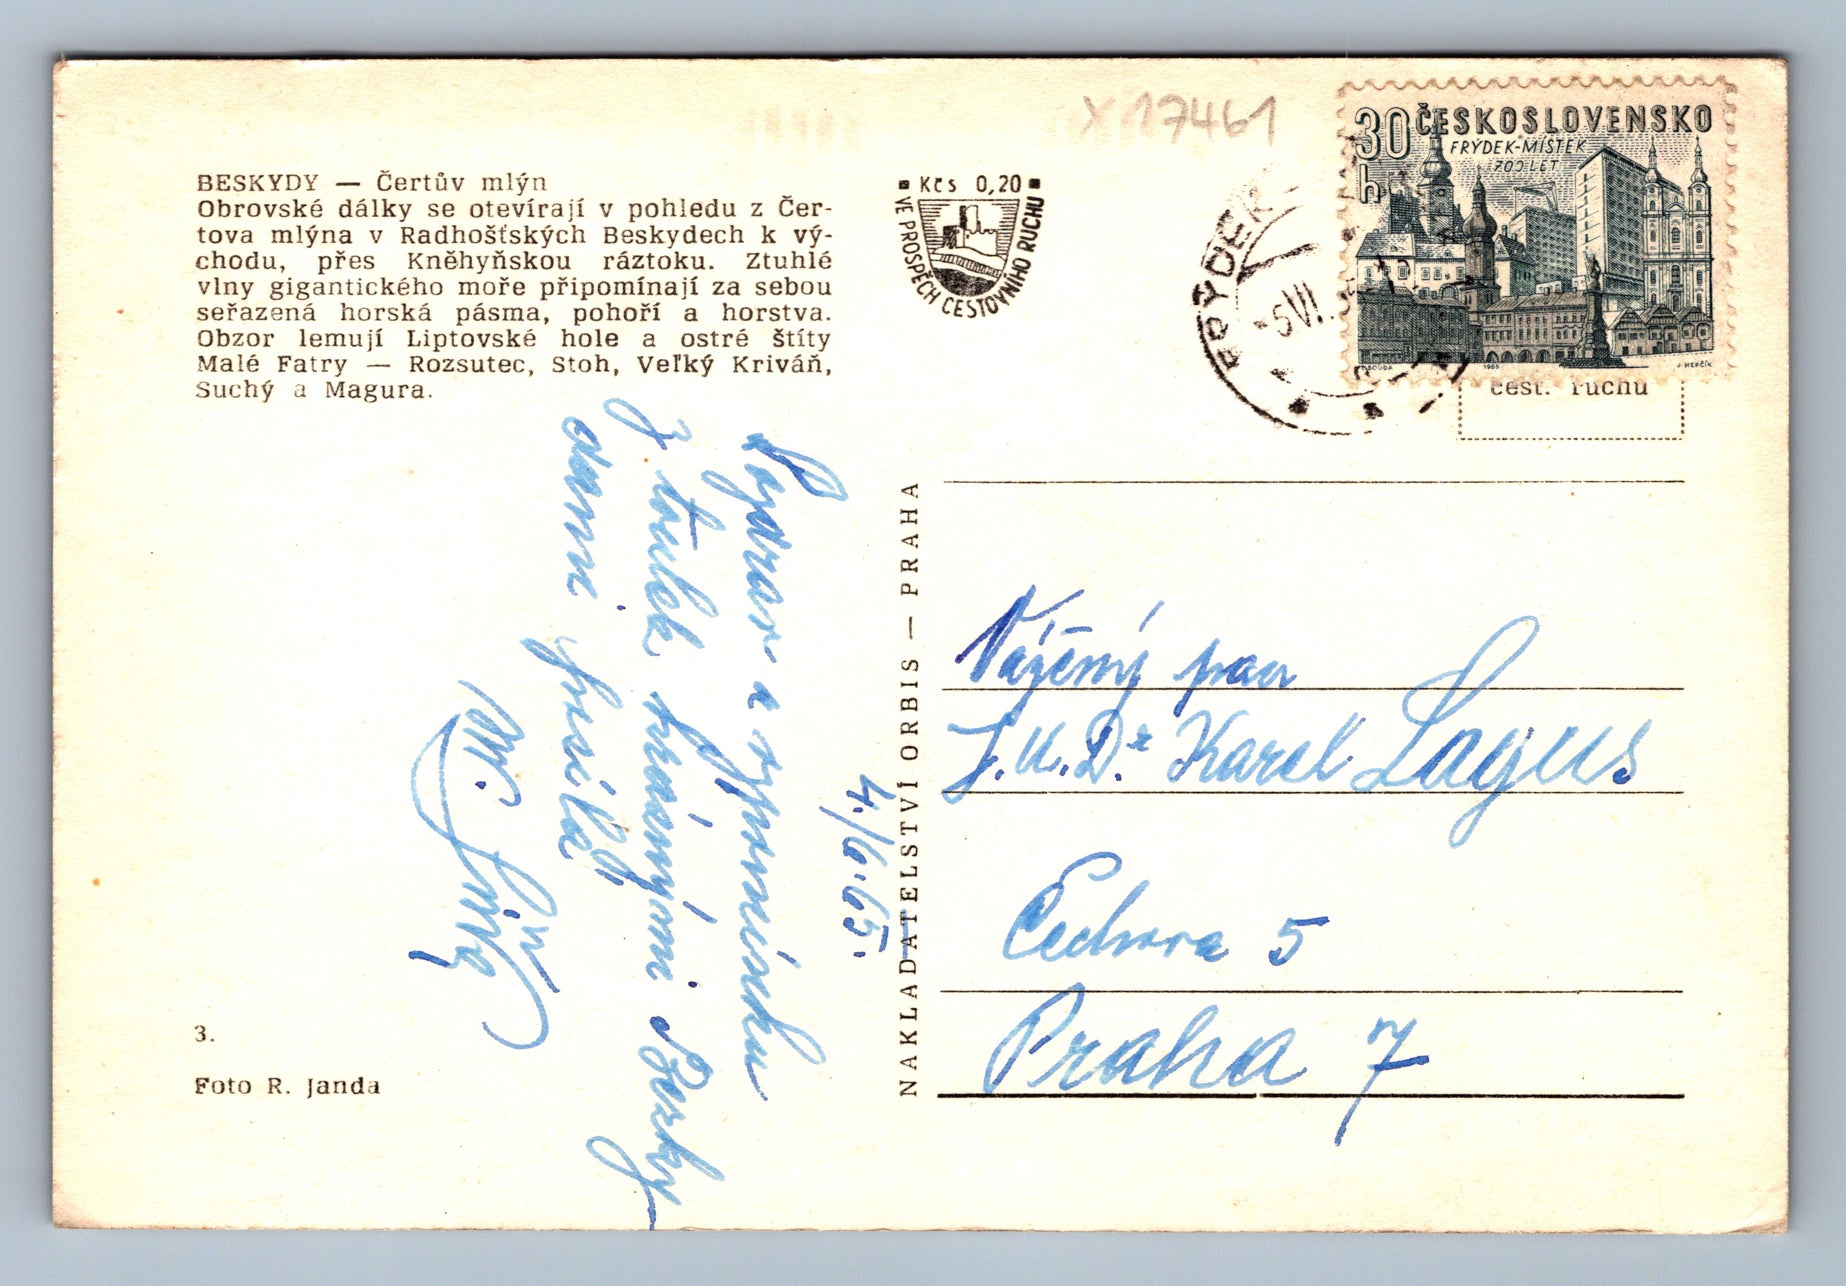 X 17461
BESKYDY — Čertův mlýn
Obrovské dálky se otevírají v pohledu z Čer-
tova mlýna v Radhošťských Beskydech k vý-
chodu, přes Kněhyňskou ráztoku. Ztuhlé
vlny gigantického moře připomínají za sebou
seřazená horská pásma, pohoří a horstva.
Obzor lemují Liptovské hole a ostré štíty
Malé Fatry — Rozsutec, Stoh, Veľký Kriváň,
Suchý a Magura.
Kčs 0,20
VE PROSPĚCH CESTOVNÍHO RUCHU
FRÝDEK
5 VI.
30 h
ČESKOSLOVENSKO
FRÝDEK-MÍSTEK
700 LET
1965
J. HERČÍK
cest. ruchu
4./6. 65.
Pozdrav a vzpomínku
z toulek krásnými Bezky
dami posílá
NAKLADATELSTVÍ ORBIS — PRAHA
Vážený pan
J.U.Dr Karel Lagus
Čechova 5
Praha 7
3.
Foto R. Janda